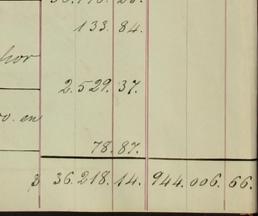 133. 84.
hor
2.529. 37.
o. en
78. 87.
36.218. 14. 944.006. 66.